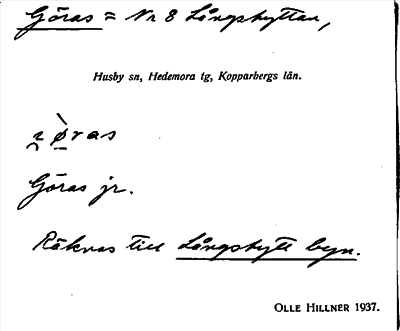 Göras = Nr 8 Långshyttan,
Husby sn, Hedemora tg, Kopparbergs län.
Göras jr.
Räknas till Långshytt byn.
OLLE HILLNER 1937.